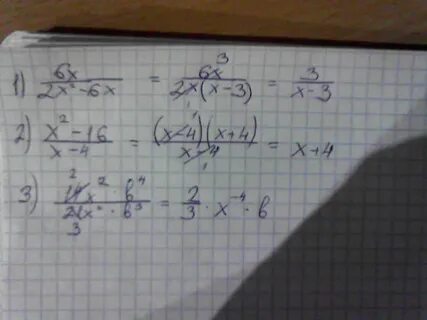 1) 6x / (2x² - 6x) = 6x 3 / (2x(x-3)) = 3 / (x-3)
2) (x² - 16) / (x - 4) = (x-4)(x+4) / (x-4) = x+4
3) 14x² · b⁴ / (21x · b³) = 2/3 · x⁻⁴ · b